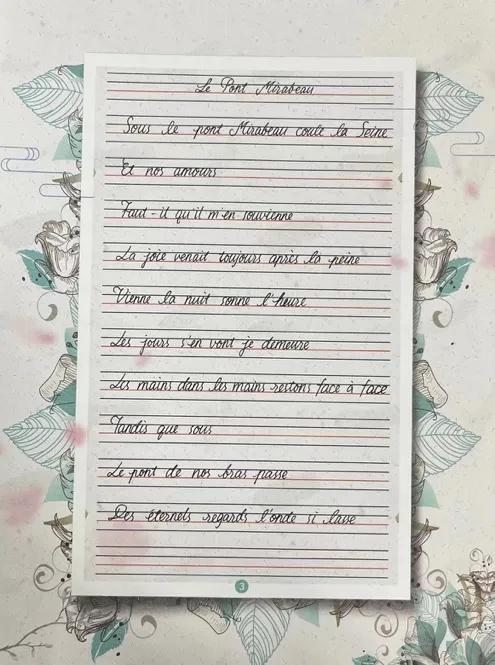 Le Pont Mirabeau
Sous le pont Mirabeau coule la Seine
Et nos amours
Faut-il qu'il m'en souvienne
La joie venait toujours après la peine
Vienne la nuit sonne l'heure
Les jours s'en vont je demeure
Les mains dans les mains restons face à face
Tandis que sous
Le pont de nos bras passe
Des éternels regards l'onde si lasse
3